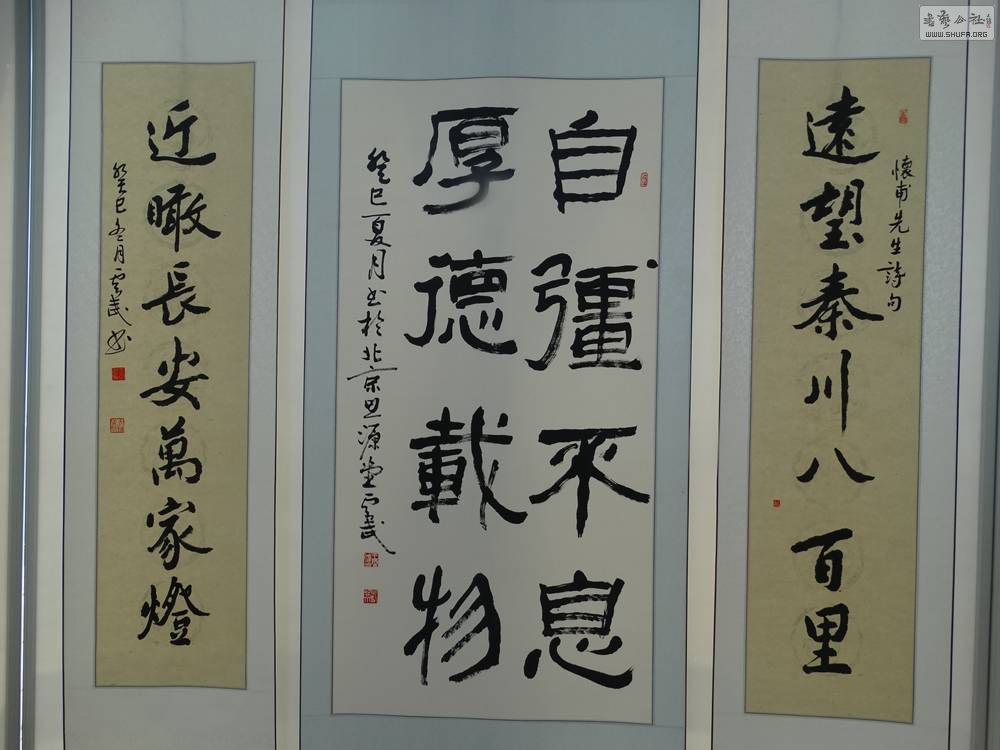 遠望秦川八百里
懷甫先生詩句
自彊不息
厚德載物
癸巳夏月書於北京思源堂雲武
近瞰長安萬家燈
癸巳冬月雲武書
WWW.SHUFA.ORG